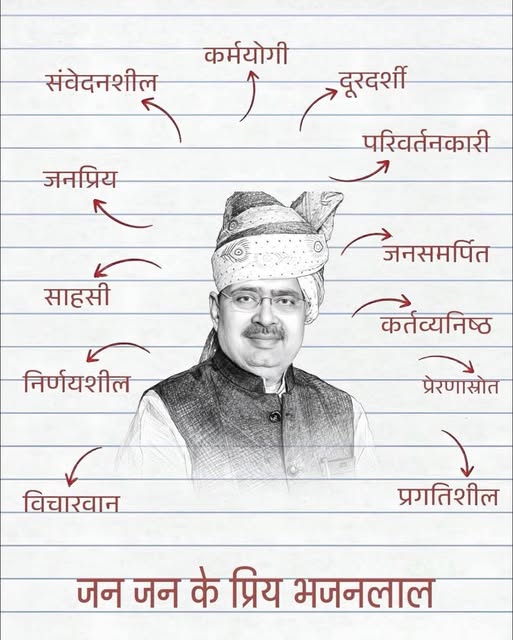 कर्मयोगी
संवेदनशील
दूरदर्शी
परिवर्तनकारी
जनप्रिय
जनसमर्पित
साहसी
कर्तव्यनिष्ठ
निर्णयशील
प्रेरणास्रोत
विचारवान
प्रगतिशील
जन जन के प्रिय भजनलाल